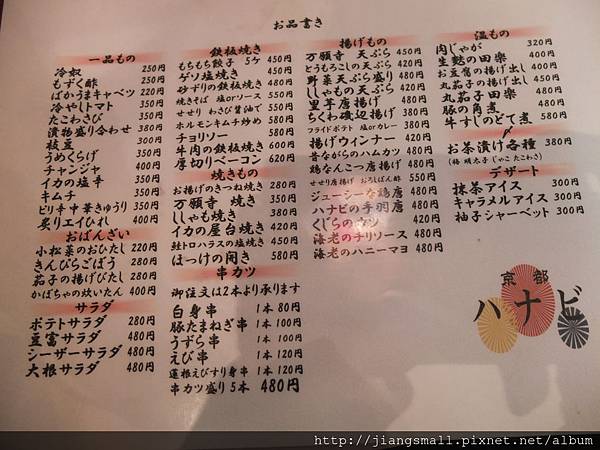 お品書き
一品もの
冷奴 250円
もずく酢 250円
ばかうまキャベツ 220円
冷やしトマト 350円
たこわさび 350円
漬物盛り合わせ 380円
枝豆 300円
うめくらげ 350円
チャンジャ 350円
イカの塩辛 350円
キムチ 350円
ピリ辛中華きゅうり 350円
炙りエイひれ 400円
おばんざい
小松菜のおひたし 220円
きんぴらごぼう 280円
茄子の揚げびたし 280円
かぼちゃの炊いたん 400円
サラダ
ポテトサラダ 280円
豆富サラダ 480円
シーザーサラダ 480円
大根サラダ 480円
鉄板焼き
もちもち餃子 5ケ 450円
ゲソ塩焼き 450円
砂ずりの鉄板焼き 480円
焼きそば 塩orソース 550円
せせり わさび醤油で 550円
ホルモンキムチ炒め 580円
チョリソー 580円
牛肉の鉄板焼き 600円
厚切りベーコン 620円
焼きもの
お揚げのきつね焼き 350円
万願寺 焼き 350円
ししゃも焼き 380円
イカの屋台焼き 420円
鮭トロハラスの塩焼き 450円
ほっけの開き 580円
串カツ
御注文は2本より承ります
白身串 1本 80円
豚たまねぎ串 1本 100円
うずら串 1本 100円
えび串 1本 120円
蓮根えびすり身串 1本 120円
串カツ盛り5本 480円
揚げもの
万願寺 天ぷら 450円
とうもろこしの天ぷら 420円
野菜天ぷら盛り 480円
ししゃもの天ぷら 450円
里芋唐揚げ 380円
ちくわ磯辺揚げ 380円
フライドポテト 塩orカレー 380円
揚げウィンナー 420円
昔ながらのハムカツ 480円
鶏なんこつ唐揚げ 480円
せせり唐揚げ おろしぽん酢 550円
ジューシーな鶏唐 480円
ハナビの手羽唐 480円
くじらのカツ 420円
海老のチリソース 480円
海老のハニーマヨ 480円
温もの
肉じゃが 320円
生麩の田楽 400円
お豆腐の揚げ出し 400円
丸茄子の揚げ出し 450円
丸茄子田楽 450円
豚の角煮 480円
牛すじのどて煮 580円
お茶漬け各種 380円
(梅 明太子 じゃこ たこわさ)
デザート
抹茶アイス 300円
キャラメルアイス 300円
柚子シャーベット 300円
京都
ハナビ
http://jiangsmall.pixnet.net/album